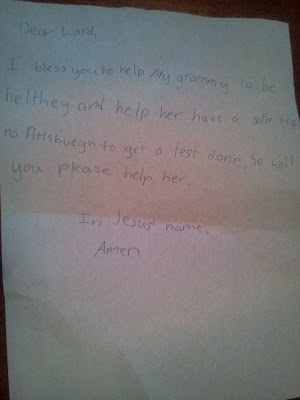 Dear Lord,
I bless you to help My grammy to be
helthey and help her have a safe trip
to Pittsburgh to get a test done, so will
you please help her.
In Jesus' name,
Amen